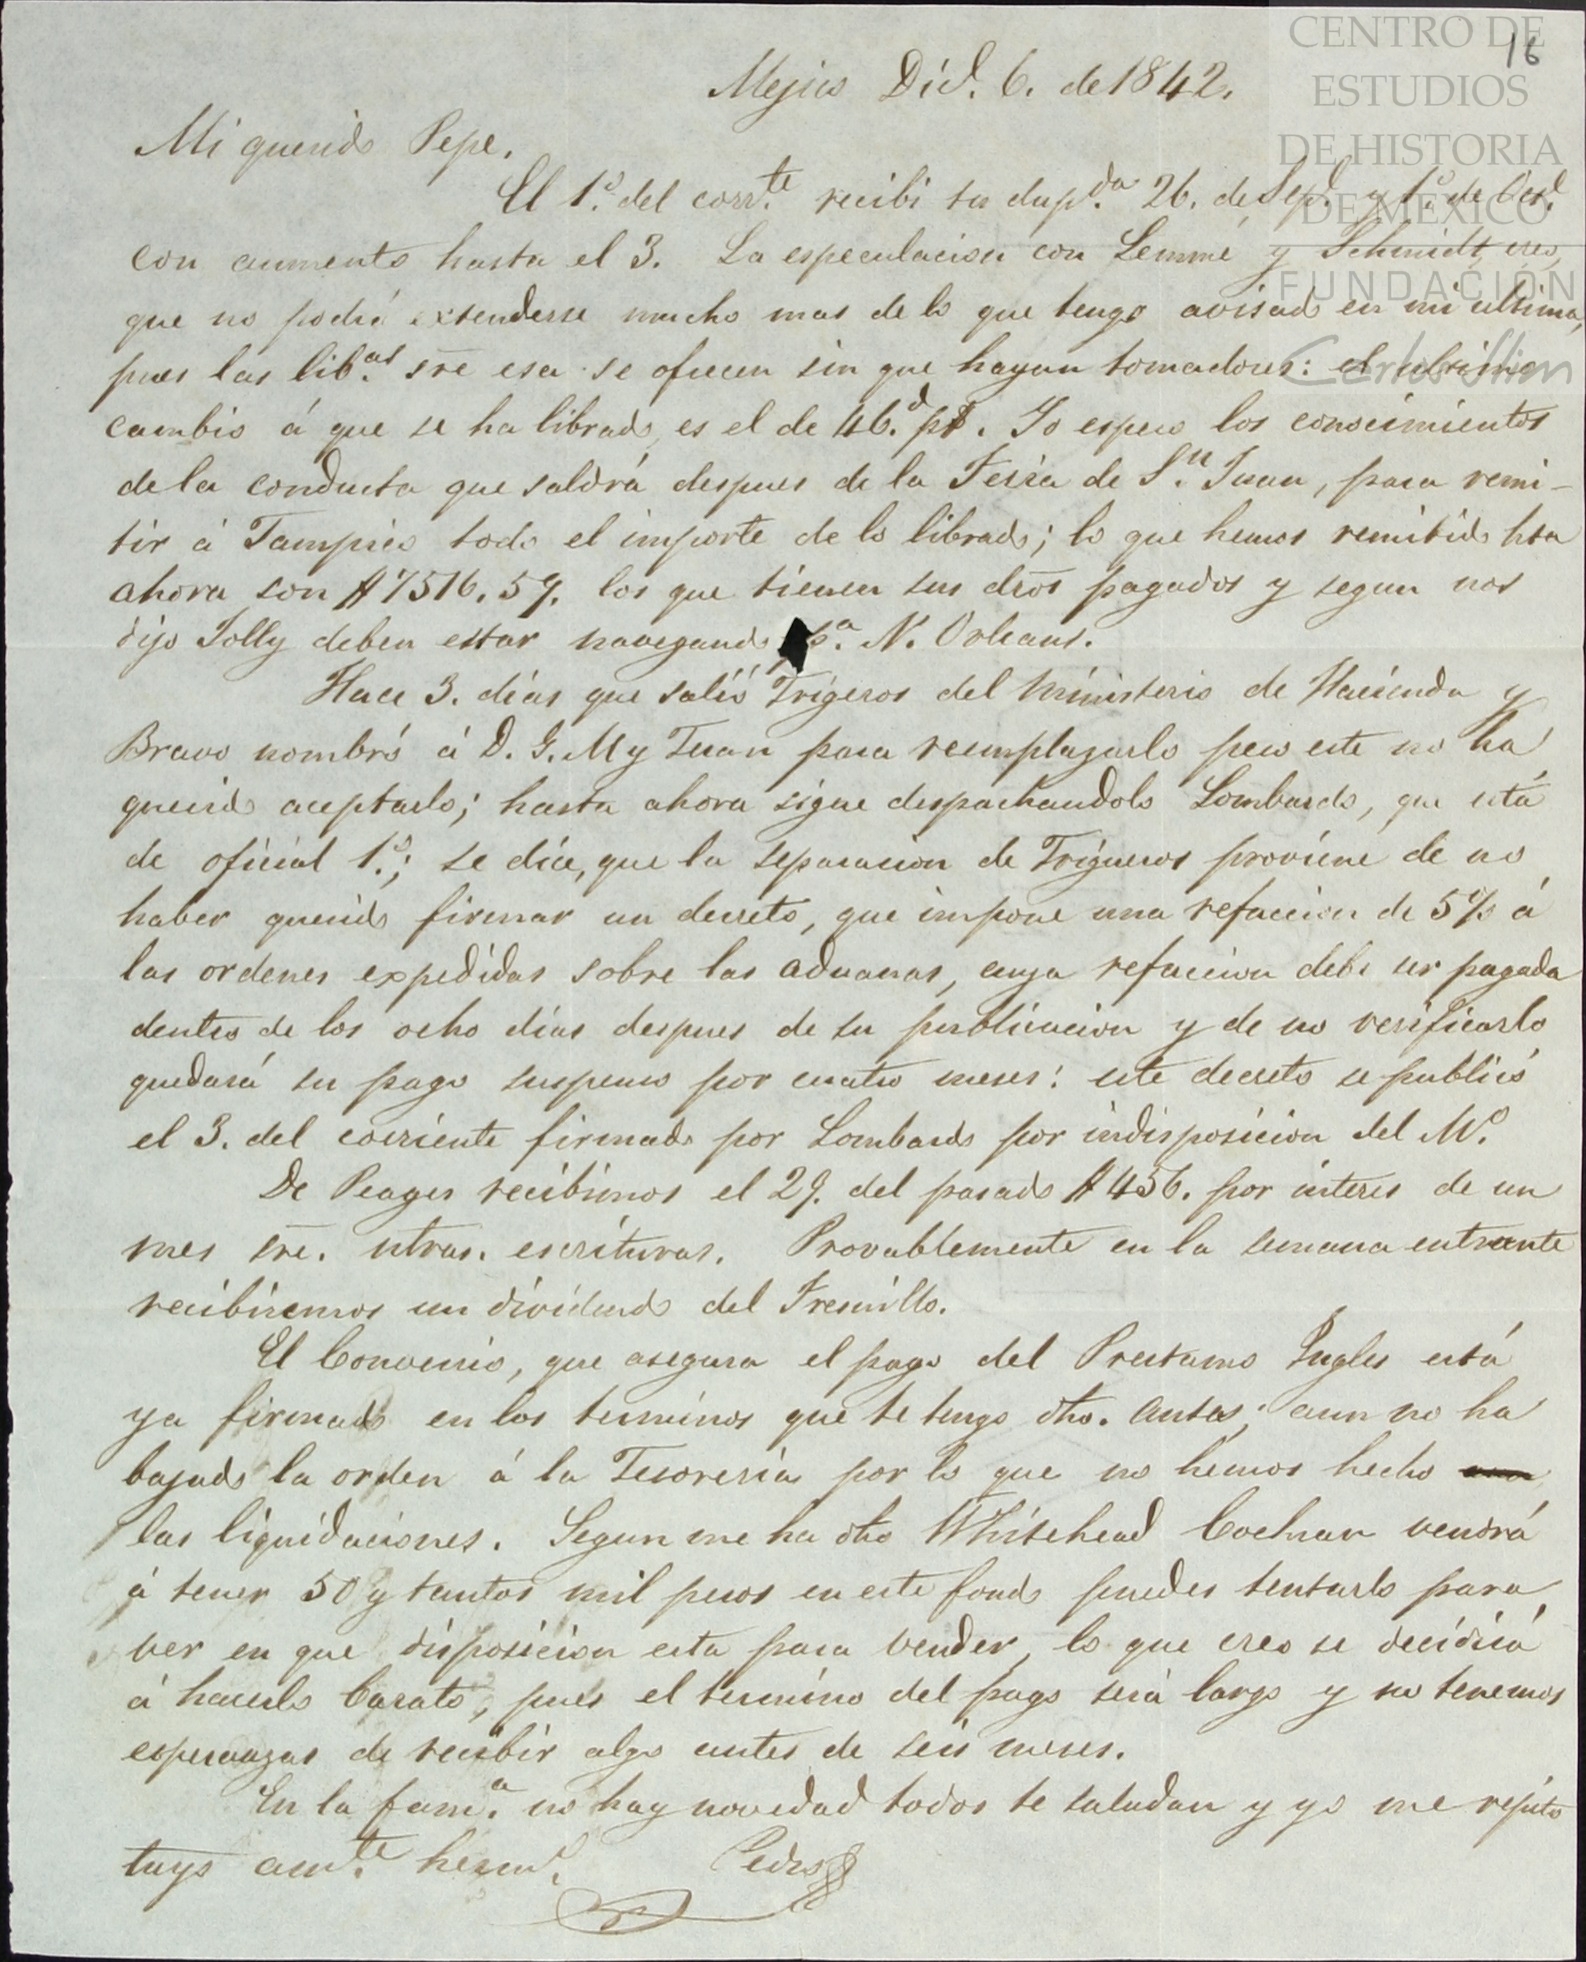 CENTRO DE
ESTUDIOS
DE HISTORIA
DE MÉXICO
FUNDACIÓN
Carlos Slim
16
Mejico Dic.e 6. de 1842.
Mi querido Pepe.
El 1.o del corr.te recibi tu dup.da 26. de Sep.e y 1.o de Oct.e
con aumento hasta el 3. La especulacion con Lemmé y Schmidt, creo,
que no podrá extenderse mucho mas de lo que tengo avisado en mi ultima,
pues las lib.as sre esa se ofrecen sin que hayan tomadores: el ultimo
cambio á que se ha librado, es el de 46.d p$. Yo espero los conocimientos
de la conducta que saldrá despues de la Feria de S.n Juan, para remi-
tir á Tampico todo el importe de lo librado; lo que hemos remitido hta
ahora son $7516.59. los que tienen sus dros pagados y segun nos
dijo Jolly deben estar navegando p.a N. Orleans.
Hace 3. dias que salió Trigeros del Ministerio de Hacienda y
Bravo nombró á D. G. M y Teran para reemplazarlo pero este no ha
querido aceptarlo; hasta ahora sigue despachandolo Lombardo, que está
de oficial 1.o; se dice, que la separacion de Trigueros proviene de no
haber querido firmar un decreto, que impone una refaccion de 5% á
las ordenes expedidas sobre las aduanas, cuya refaccion debe ser pagada
dentro de los ocho dias despues de su publicacion y de no verificarlo
quedará su pago suspenso por cuatro meses: este decreto se publicó
el 3. del corriente firmado por Lombardo por indisposicion del M.o
De Peages recibimos el 29. del pasado $456. por interes de un
mes sre. ntras. escrituras. Provablemente en la semana entrante
recibiremos un dividendo del Fresnillo.
El Convenio, que asegura el pago del Prestamo Ingles está
ya firmado en los terminos que te tengo dho. antes; aun no ha
bajado la orden á la Tesoreria por lo que no hemos hecho
las liquidaciones. Segun me ha dho Whitehead Cochran vendrá
á tener 50 y tantos mil pesos en este fondo puedes tentarlo para
ver en que disposicion esta para vender, lo que creo se decidirá
á hacerlo barato, pues el termino del pago será largo y no tenemos
esperanzas de recibir algo antes de seis meses.
En la fam.a no hay novedad todos te saludan y yo me repito
tuyo am.te herm.o Pedro